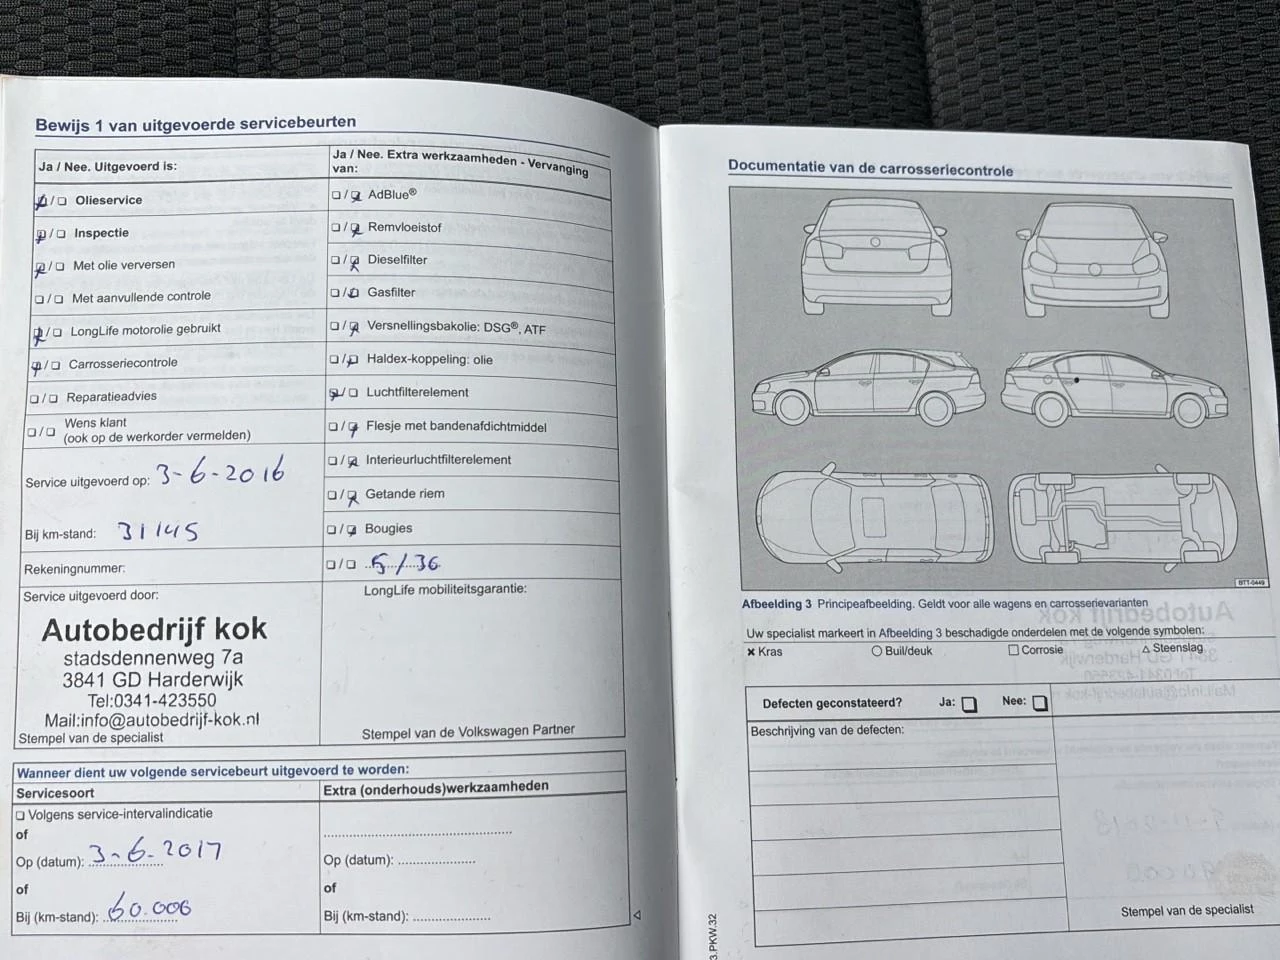 Bewijs 1 van uitgevoerde servicebeurten
Ja / Nee. Uitgevoerd is:
/ Olieservice
/ Inspectie
/ Met olie verversen
/ Met aanvullende controle
/ LongLife motorolie gebruikt
/ Carrosseriecontrole
/ Reparatieadvies
/ Wens klant
(ook op de werkorder vermelden)
Service uitgevoerd op: 3-6-2016
Bij km-stand: 31145
Rekeningnummer:
Service uitgevoerd door:
Autobedrijf kok
stadsdennenweg 7a
3841 GD Harderwijk
Tel:0341-423550
Mail:info@autobedrijf-kok.nl
Stempel van de specialist
Ja / Nee. Extra werkzaamheden - Vervanging
van:
/ AdBlue®
/ Remvloeistof
/ Dieselfilter
/ Gasfilter
/ Versnellingsbakolie: DSG®, ATF
/ Haldex-koppeling: olie
/ Luchtfilterelement
/ Flesje met bandenafdichtmiddel
/ Interieurluchtfilterelement
/ Getande riem
/ Bougies
/ 5/36
LongLife mobiliteitsgarantie:
Stempel van de Volkswagen Partner
Wanneer dient uw volgende servicebeurt uitgevoerd te worden:
Servicesoort
Volgens service-intervalindicatie
of
Op (datum): 3-6-2017
of
Bij (km-stand): 60.000
Extra (onderhouds)werkzaamheden
Op (datum):
of
Bij (km-stand):
Documentatie van de carrosseriecontrole
BTT-0449
Afbeelding 3 Principeafbeelding. Geldt voor alle wagens en carrosserievarianten
Uw specialist markeert in Afbeelding 3 beschadigde onderdelen met de volgende symbolen:
× Kras ○ Buil/deuk □ Corrosie △ Steenslag
Defecten geconstateerd? Ja: Nee:
Beschrijving van de defecten:
Stempel van de specialist
3.PKW.32